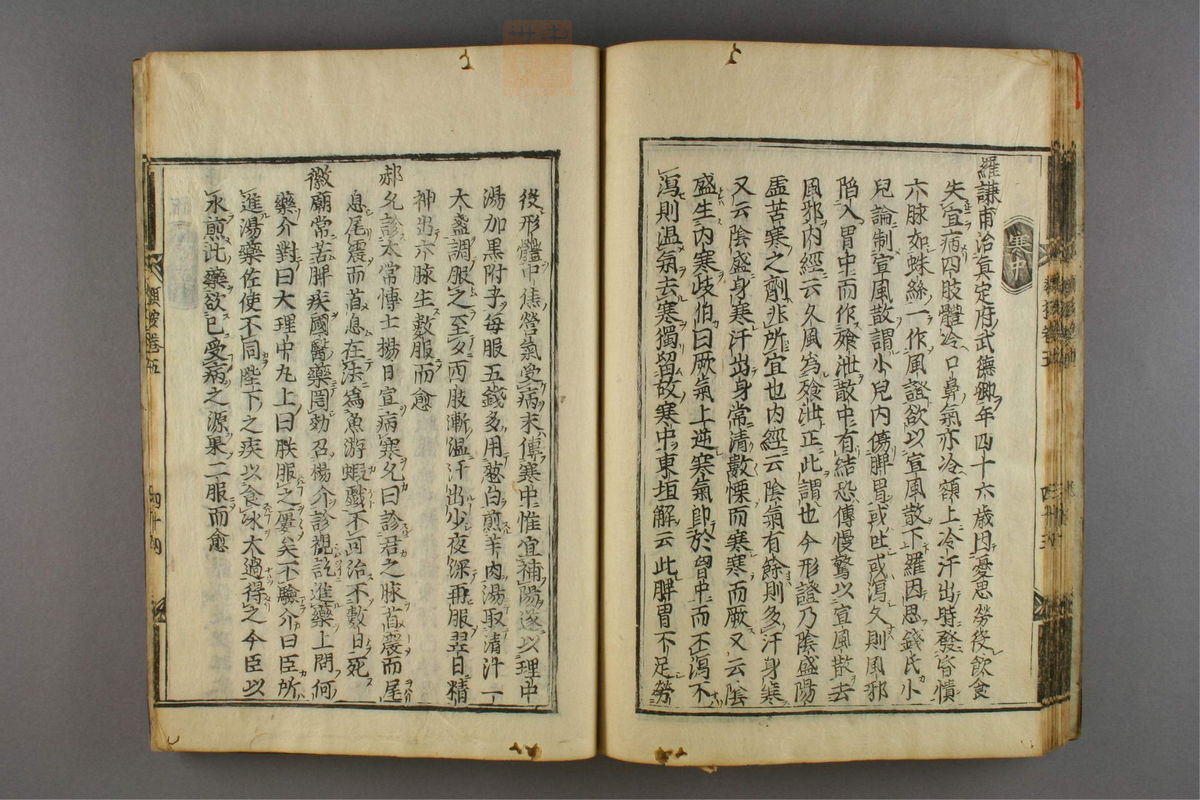 寒中
羅謙甫治真定府武德卿年四十六歲因憂思勞役飲食
失宜病四肢體冷口鼻氣亦冷額上冷汗出時發昏憒
六脉如蛛絲一作風證欲以宣風散下羅因思錢氏小
兒論制宣風散謂小兒内傷脾胃或吐或瀉久則風邪
陷入胃中而作飱泄散中有結恐傳慢驚以宣風散去
風邪内經云久風為飱泄正此謂也今形證乃陰盛陽
虛苦寒之劑非所宜也内經云陰氣有餘則多汗身寒
又云陰盛身寒汗出身常清數慄而寒寒而厥又云陰
盛生内寒歧伯曰厥氣上逆寒氣即於胷中而不瀉不
瀉則温氣去寒獨留故寒中東垣解云此脾胃不足勞
役形體中焦營氣受病末傳寒中惟宜補陽遂以理中
湯加黑附子每服五錢多用葱白煎羊肉湯取清汁一
大盞調服之至夕四肢漸温汗出少夜深再服翌日精
神出六脉生數服而愈
郝允診太常博士楊日宣病寒允曰診君之脉首震而尾
息尾震而首息在法為魚游蝦戲不可治不數日死
徽廟常苦脾疾國醫藥罔効召楊介診視訖進藥上問何
藥介對曰大理中丸上曰朕服之屢矣不驗介曰臣所
進湯藥佐使不同陛下之疾以食冰太過得之今臣以
冰煎此藥欲已受病之源果二服而愈
類案卷五